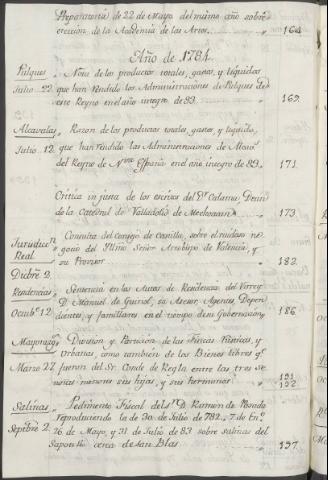 Reponsoria de 22 de Mayo del mismo año sobre
ereccion de la Academia de las Artes. 164
Año de 1784.
Pulques Nota de los productos totales, gastos, y líquidos
Julio 22. que han rendido las Administraciones de Pulques de
este Reyno en el año integro de 83. 169.
Alcavalas Razon de los productos totales, gastos, y liquido,
Julio 12. que han rendido las Administraciones de Alcavs
del Reyno de Nva España en el año integro de 83. 171.
Critica injusta de los escritos del Dr Calama Dean
de la Catedral de Valladolid de Mechoacan 173.
Jurisdiccn Consulta del Consejo de Castilla, sobre el ruidoso ne-
Real gocio del Illmo Señor Arzobispo de Valencia, y
su Provisor 182.
Dicbre 2.
Residencias Sentencia en los Autos de Residencia del Virrey
Dn Manuel de Guirior, su Asesor, Agentes, Depen-
Octube 12. dientes, y familiares en el tiempo de su Gobernacion 186
Mayorazgo Division y Particion de las Fincas Rusticas, y
Urbanas, como tambien de los Bienes libres qe
Marzo 27 fueron del Sr Conde de Regla entre las tres Se-
ñoras menores sus hijas, y sus hermanos 191
192
Salinas Pedimento Fiscal del Sr Dn Ramon de Posada
reproduciendo los de 30 de Julio de 782, 7 de Eno
Sepbre 2. 26 de Mayo, y 31 de Julio de 83 sobre salinas del
Zapotillo cerca de San Blas. 197